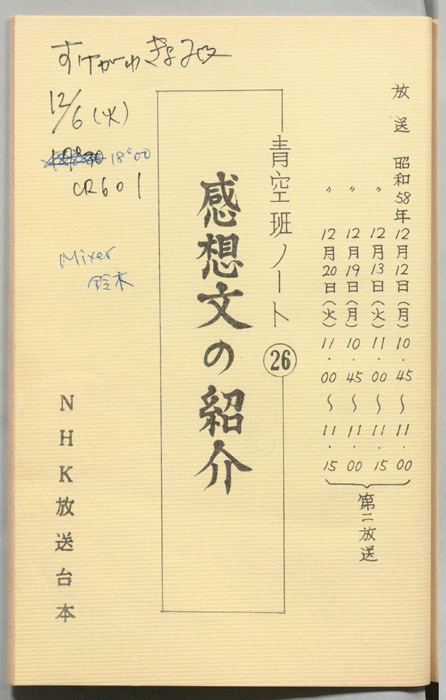 放送 昭和58年12月12日(月)10・45〜11・00
〃 12月13日(火)11・00〜11・15
〃 12月19日(月)10・45〜11・00
12月20日(火)11・00〜11・15
第二放送
青空班ノート㉖
感想文の紹介
すけがわきよみ
12/6(火)
18°00
CR601
Mixer
鈴木
NHK放送台本